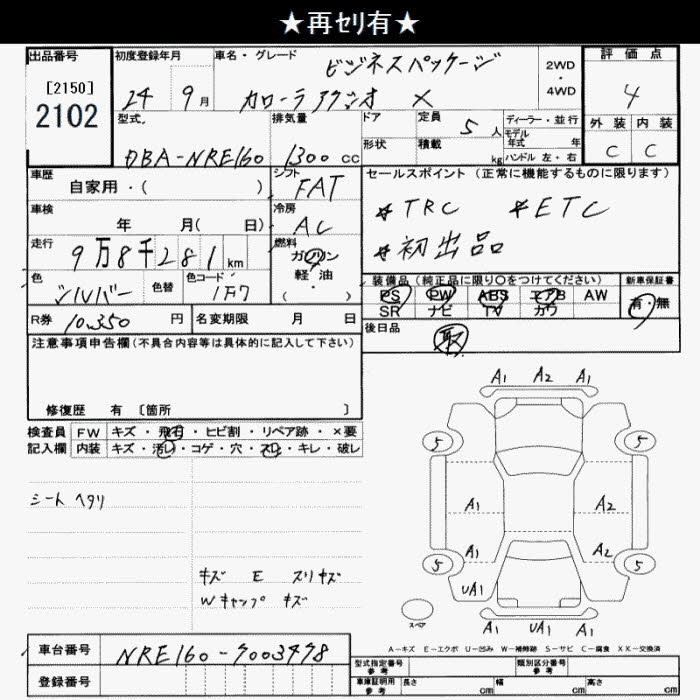 ★再セリ有★
出品番号 初度登録年月 車名・グレード 2WD・4WD 評価点
[2150]
2102
24 9月 ビジネスパッケージ
カローラアクシオ X
4
型式 排気量 ドア 定員 5人 ディーラー・並行 外装 内装
DBA-NRE160 1300cc 形状 積載 kg モデル年式 年 C C
ハンドル 左・右
車歴 シフト セールスポイント(正常に機能するものに限ります)
自家用・( ) FAT
車検 冷房 ＊TRC ＊ETC
年 月( 日) AC
走行 燃料 ＊初出品
9万8千281km ガソリン
色 色替 色コード 軽油
シルバー 1F7 ・( )
装備品(純正品に限り○をつけてください) 新車保証書
PS PW ABS エアB AW 有・無
SR ナビ TV カワ
R券 10,350円 名変期限 月 日 後日品
取
注意事項申告欄(不具合内容等は具体的に記入して下さい)
修復歴 有 [箇所 ]
検査員 FW キズ・飛石・ヒビ割・リペア跡・×要
記入欄 内装 キズ・汚れ・コゲ・穴・スレ・キレ・破レ
シート ヘタリ
キズ E スリキズ
Wキャップ キズ
A1 A2 A1
5 5
A1 A2
A1 A2
5 5
UA1
スペア
A1 UA1 A1
A－キズ E－エクボ U－凹み W－補修跡 S－サビ C－腐食 XX－交換済
車台番号 NRE160-7003478
型式指定番号 参考 類別区分番号 参考
登録番号
車庫証明用 参考 長さ cm 幅 cm 高さ cm